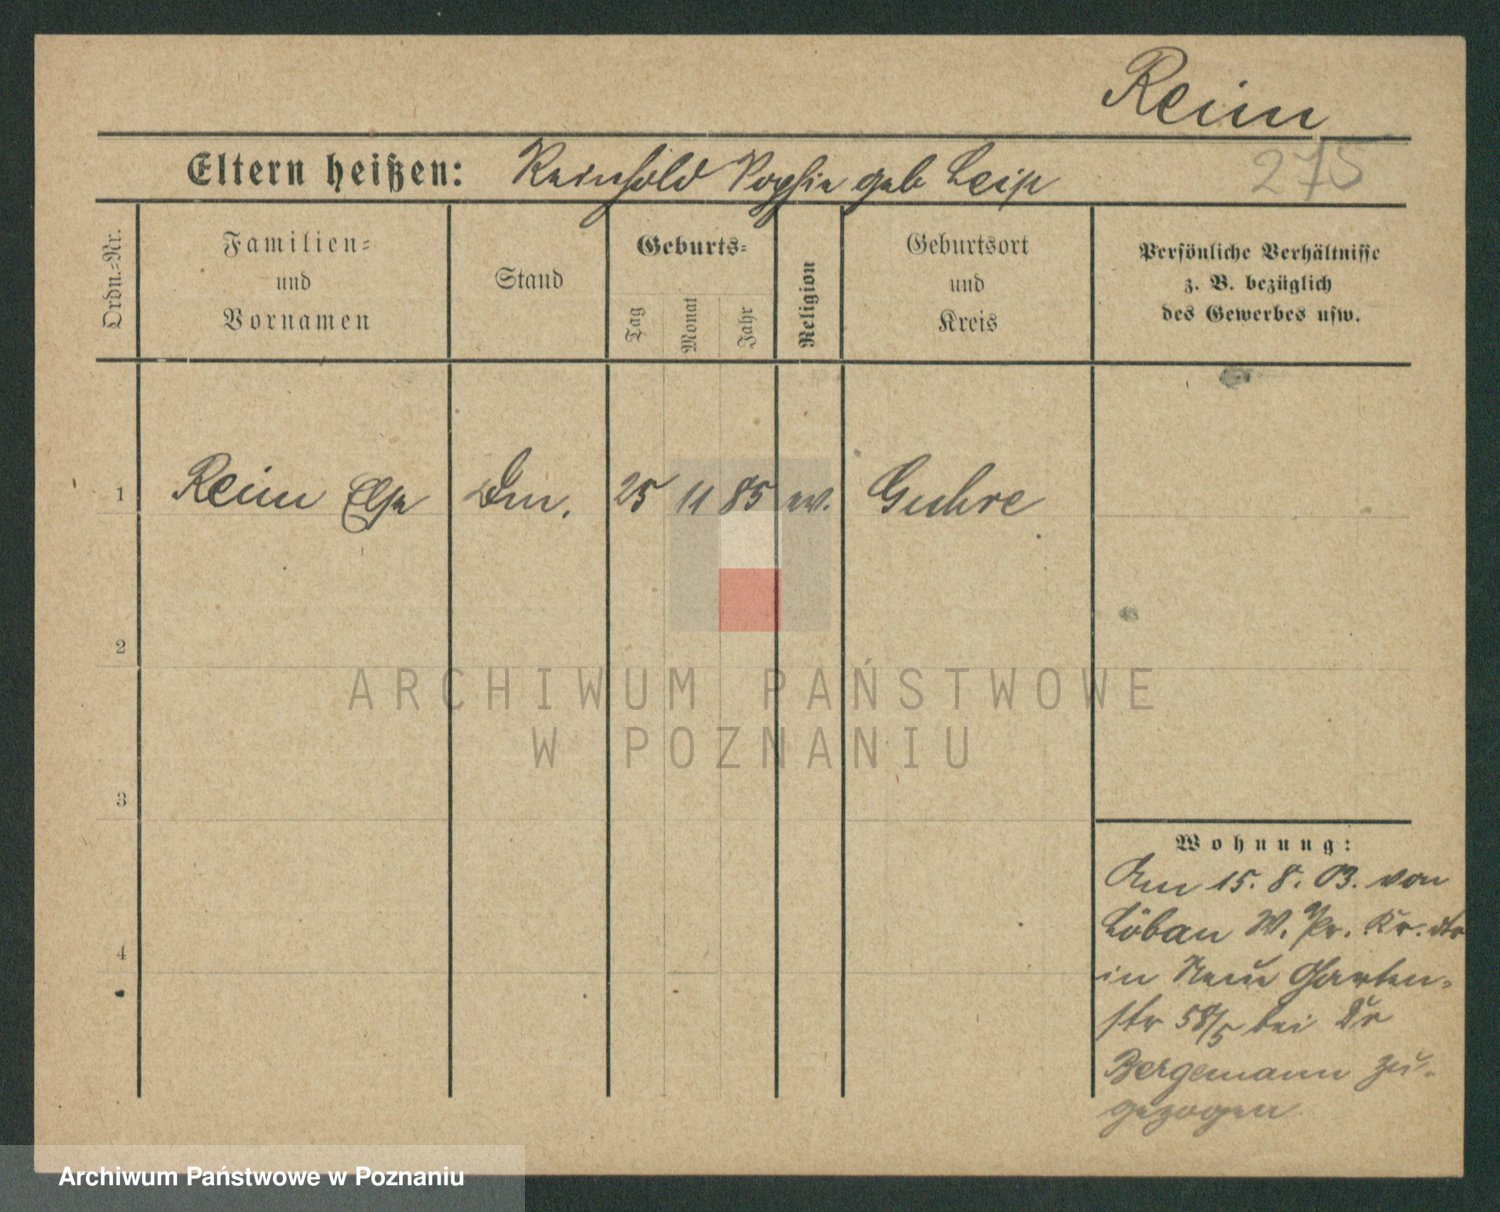 Reim
Eltern heißen: Reinhold Sophie geb Leip
275
Ordn.-Nr.
Familien-
und
Vornamen
Stand
Geburts-
Tag
Monat
Jahr
Religion
Geburtsort
und
Kreis
Persönliche Verhältnisse
z. B. bezüglich
des Gewerbes usw.
1 Reim Else Dm. 25 11 85 ev. Guhre
2
ARCHIWUM PAŃSTWOWE
W POZNANIU
3
4
Wohnung:
Am 15. 8. 03. von
Löbau W. Pr. Kr. dto
in Neue Garten-
str 58/5 bei Dr
Bergemann zu-
gezogen
Archiwum Państwowe w Poznaniu